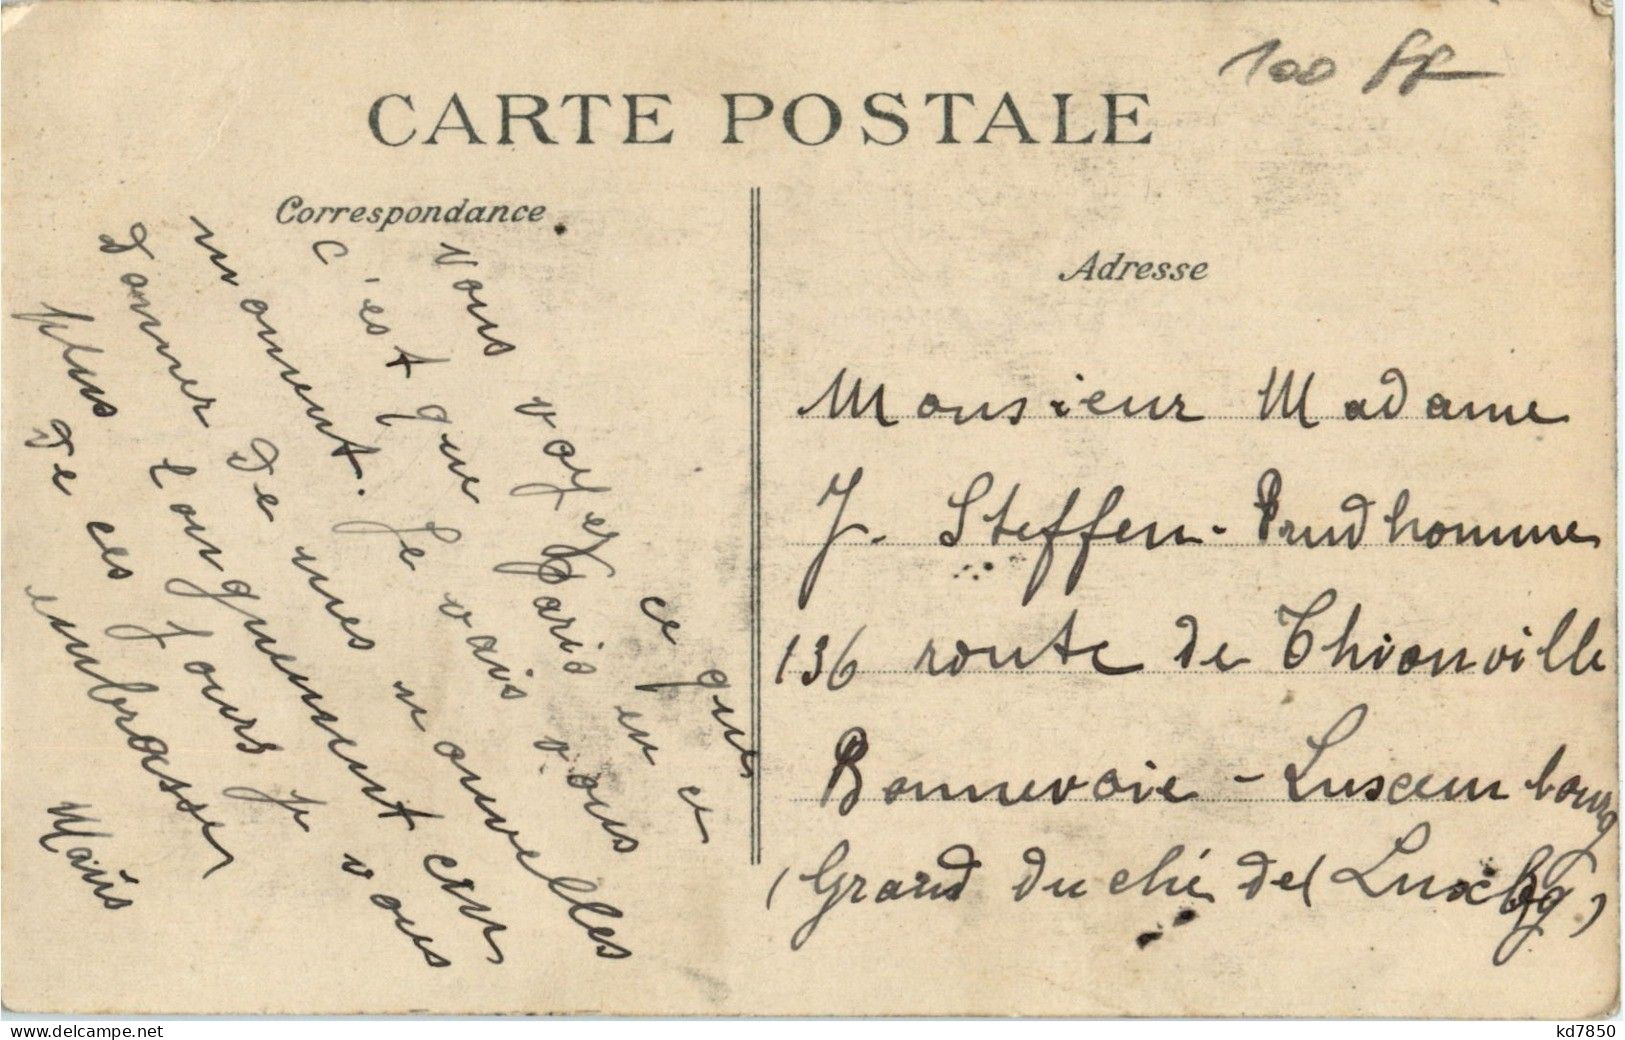 100 FF
CARTE POSTALE
Correspondance
Adresse
Vous voyez ce que
c'est que Paris en ce
moment. Je vais vous
donner de mes nouvelles
plus longuement un
de ces jours je vous
embrasse
Monsieur Madame
J. Steffen-Prudhomme
136 route de Thionville
Bonnevoie - Luxembourg
(Grand duché de Luxbg)
www.delcampe.net
kd7850